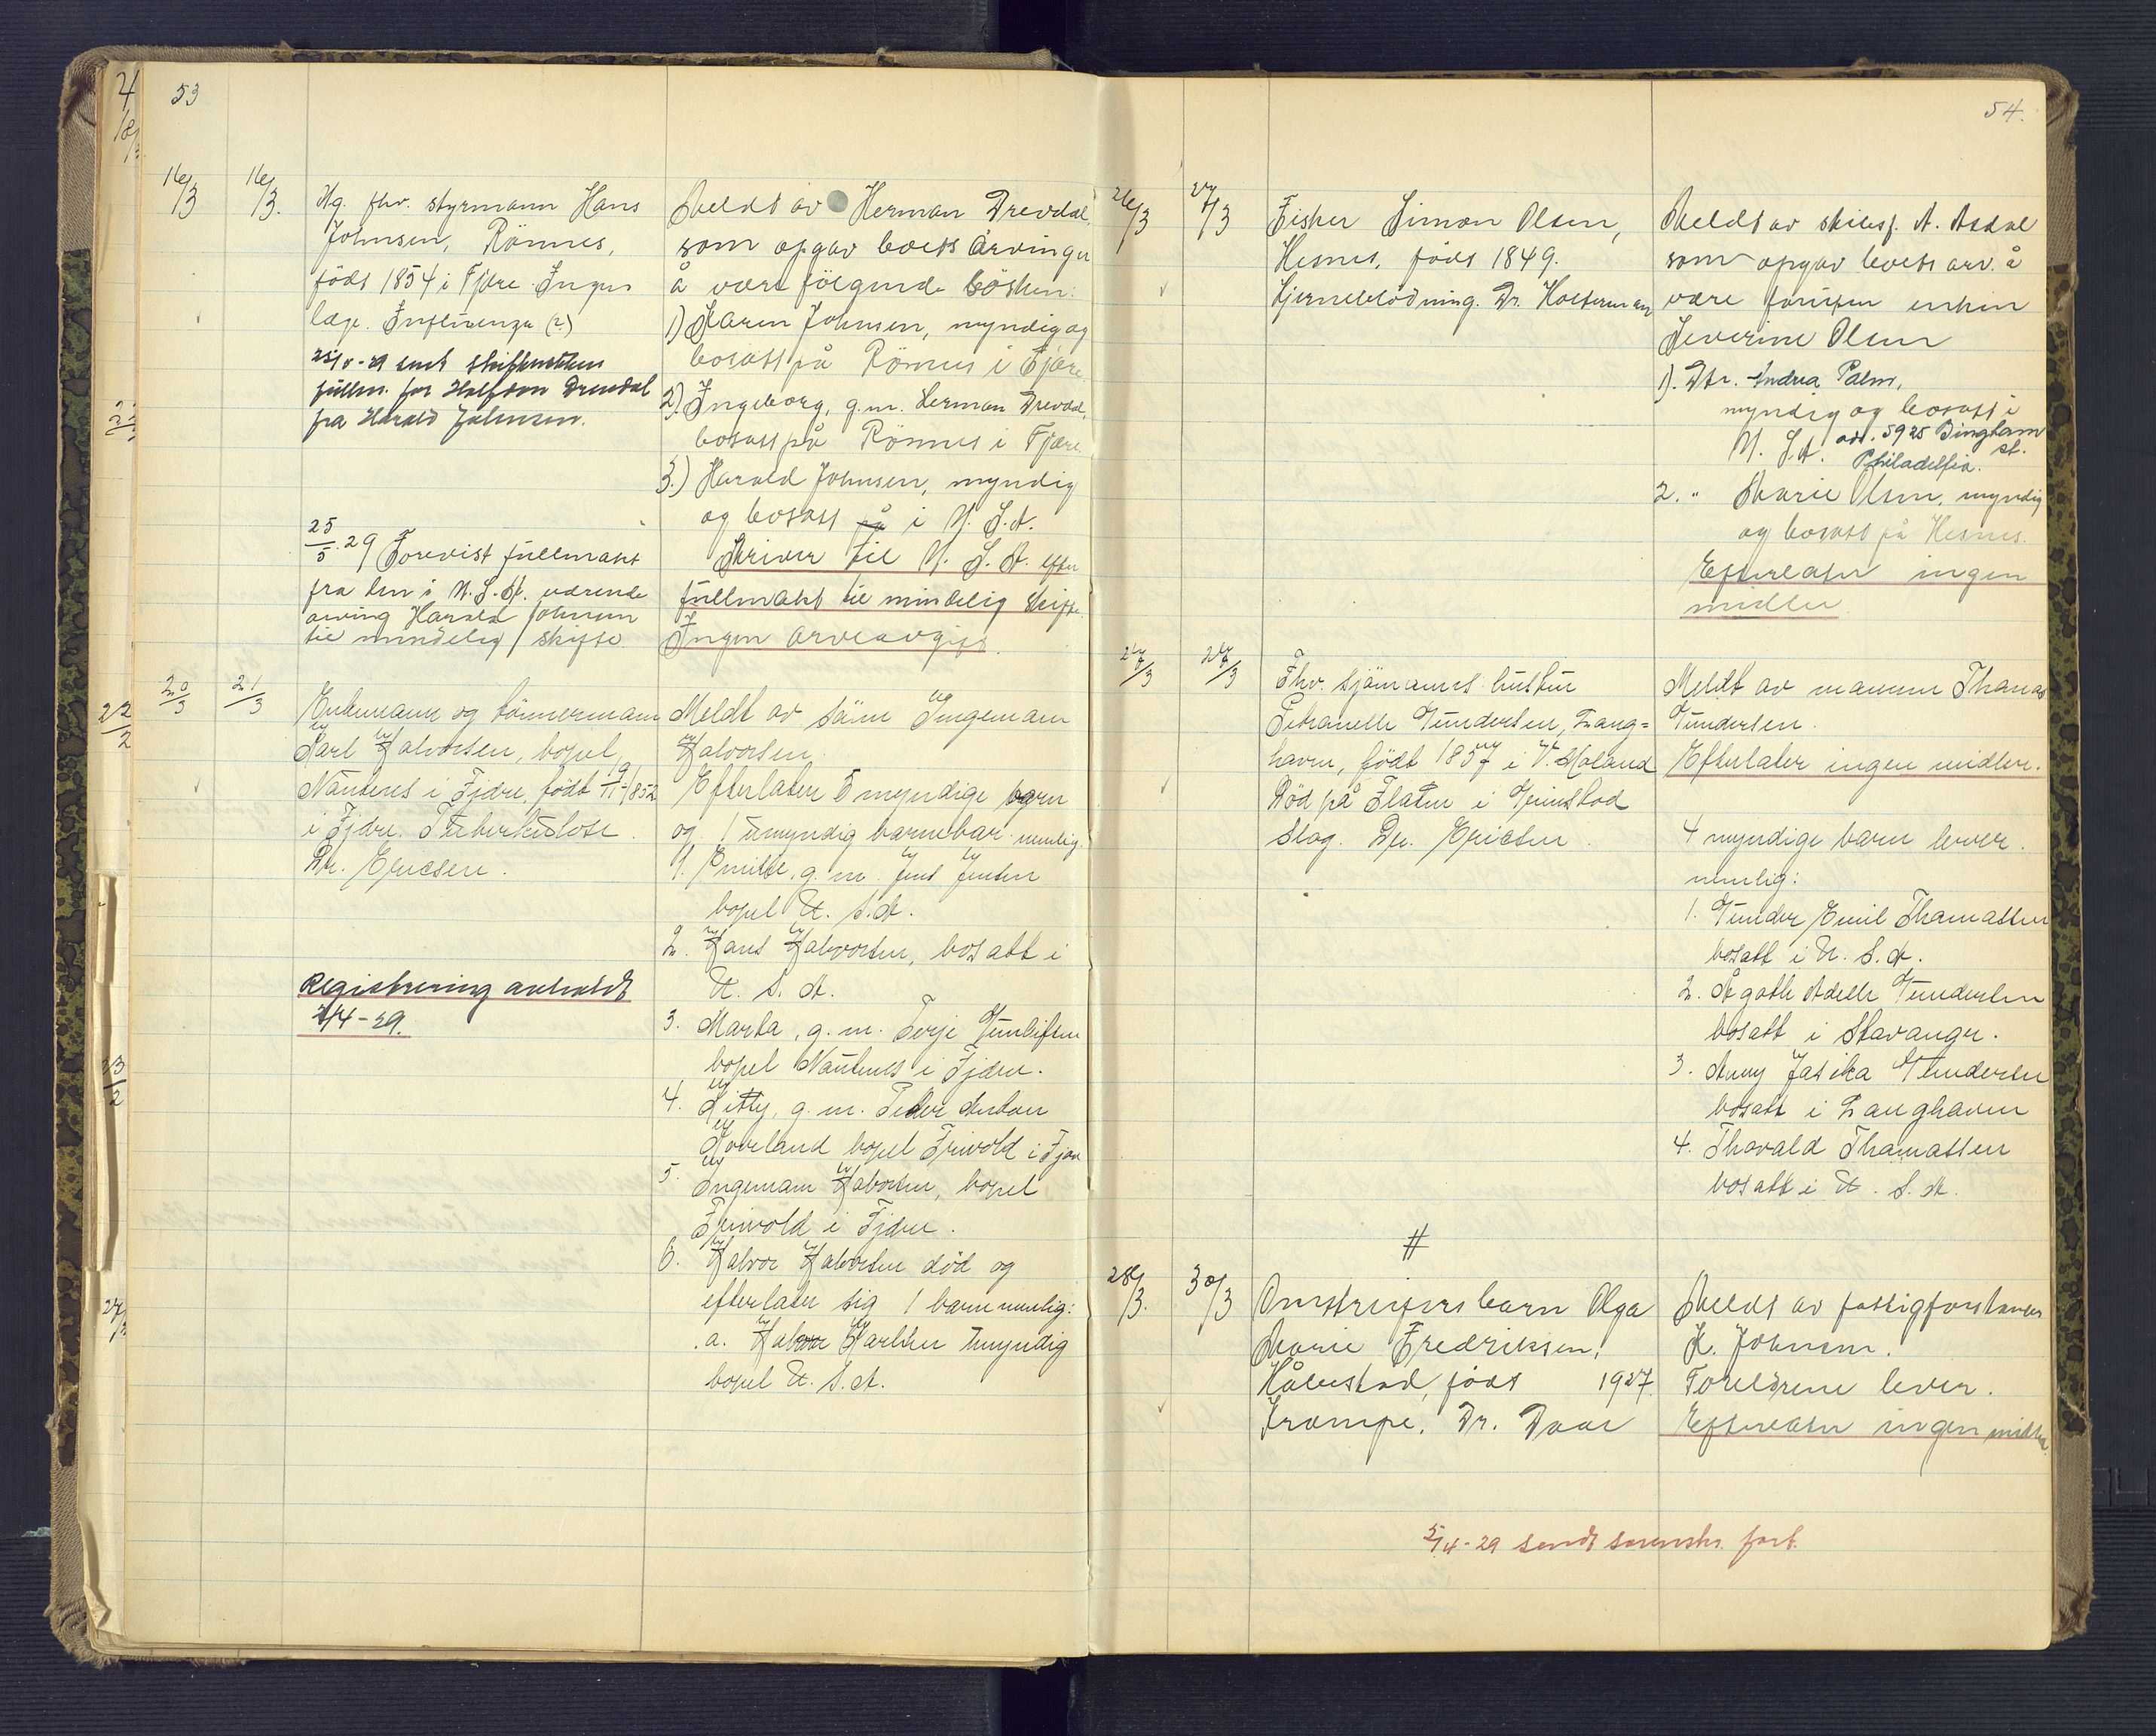 53
16/3 16/3.
Ug. fhv. styrmann Hans
Johnsen, Rönnes,
födt 1854 i Fjære. Ingen
læge. Influenza (?)
fullm. for Halfdan Drevdal
fra Harald Johnsen.
25/5. 29 Forevist fullmakt
fra den i U.S.A. værende
arving Harald Johnsen
til mindelig skifte
Meldt av Herman Drevdal,
som opgav boets arvinger
å være fölgende sösken:
1) Karen Johnsen, myndig og
bosatt på Rönnes i Fjære
2) Ingeborg, g.m. Herman Drevdal,
bosatt på Rönnes i Fjære
3.) Harald Johnsen, myndig
og bosatt på i U.S.A.
Skriver til U.S.A. efter
fullmakt til mindelig skifte.
Ingen arveavgift.
20/3 21/3
Enkemann og tömmermann
Karl Halvorsen, bopel
Nautenes i Fjære, födt 19/11-1852
i Fjære. Tuberkulose.
Dr. Ericsen.
Registrering avholdt
2/4-29.
Meldt av sönn Ingemann
Halvorsen
Efterlater 5 myndige barn
og 1 umyndig barnebar. nemlig.
1. Emilie, g.m. Jens Jensen
bopel U.S.A.
2. Hans Halvorsen, bosatt i
U.S.A.
3. Marta, g.m. Terje Gunleifsen
bopel Nautenes i Fjære.
4. Kitty, g.m. Peder Anton
Hoveland bopel Frivold i Fjære
5. Ingemann Halvorsen, bopel
Frivold i Fjære.
6. Halvor Halvorsen död og
efterlater sig 1 barn nemlig:
a. Halvor Karlsen umyndig
bopel U.S.A.
54.
26/3 27/3
Fisker Simon Olsen,
Hesnes, födt 1849.
Hjerneblödning. Dr. Holterman
Meldt av skibsf. A. Asdal
som opgav boets arv. å
være foruten enken
Severine Olsen
1). Dtr. Andrea Palm,
myndig og bosatt i
U.S.A. adr. 5925 Bingham st.
Philadelfia.
2. " Marie Olsen, myndig
og bosatt på Hesnes.
Efterlater ingen
midler
27/3 27/3
Fhv. sjömanns hustru
Petranelle Gundersen, Lang=
havn, född 1857 i V. Moland
Död på Flaten i Grimstad
Slag. Dr. Ericsen.
Meldt av mannen Thomas
Gundersen.
Efterlater ingen midler.
4 myndige barn lever.
nemlig:
1. Gunder Emil Thomassen
bosatt i U.S.A.
2. Agathe Adelle Gundersen
bosatt i Stavanger.
3. Anny Jasika Gundersen
bosatt i Langhavn
4. Thorvald Thomassen
bosatt i U.S.A.
#
28/3. 30/3
Omstreiferbarn Olga
Marie Fredriksen,
Håbestad, födt 1927.
Krampe. Dr. Daae
Meldt av fattigforstander
K. Johnsen.
Foreldrene lever.
Efterlater ingen midler
5/4-29 sendt sorenskr. fort.